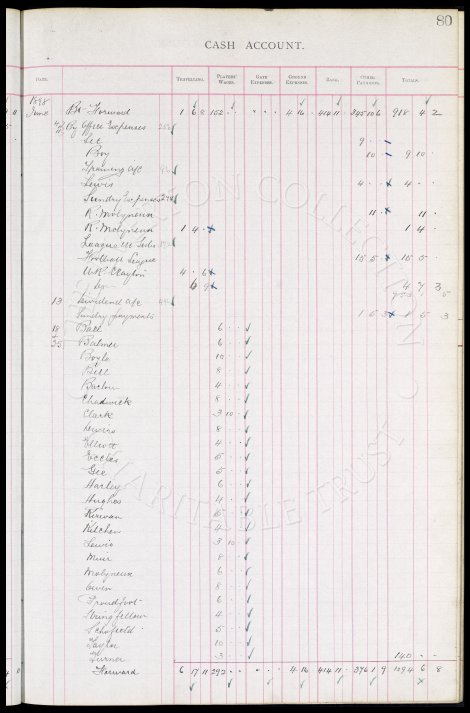 80
CASH ACCOUNT.
DATE. TRAVELLING. PLAYERS' WAGES. GATE EXPENSES. GROUND EXPENSES. BANK. OTHER PAYMENTS. TOTALS.
1898
June Bt. Forward 1 6 152 4 16 414 11 345 10 6 918 4 2
By Office Expenses
Sec 9
Boy 10 9 10
Training a/c
Lewis 4 4
Sundry Expenses
R. Molyneux 11 11
R. Molyneux 1 4 1 4
League
Football League 15 5 15 5
W.R. Clayton 4 6
6 9 4 7 3
13 Dividend a/c
Sundry payments 1 5 3 5 3
18 Ball 6
Balmer 6
Boyle 10
Bell 8
Barlow 4
Chadwick 8
Clark 3 10
8
Elliott 4
Eccles 5
Gee 5
Harley 6
Hughes 4
Kirwan 5
Kitchen 4
Lewis 3 10
Muir 8
Molyneux 6
Owen 8
Proudfoot 6
Stringfellow 4
Schofield 5
Taylor 10
Turner 3 140
Forward 6 17 11 292 4 16 414 11 376 1 9 1094 6 8
CHARITABLE TRUST
COLLECTION